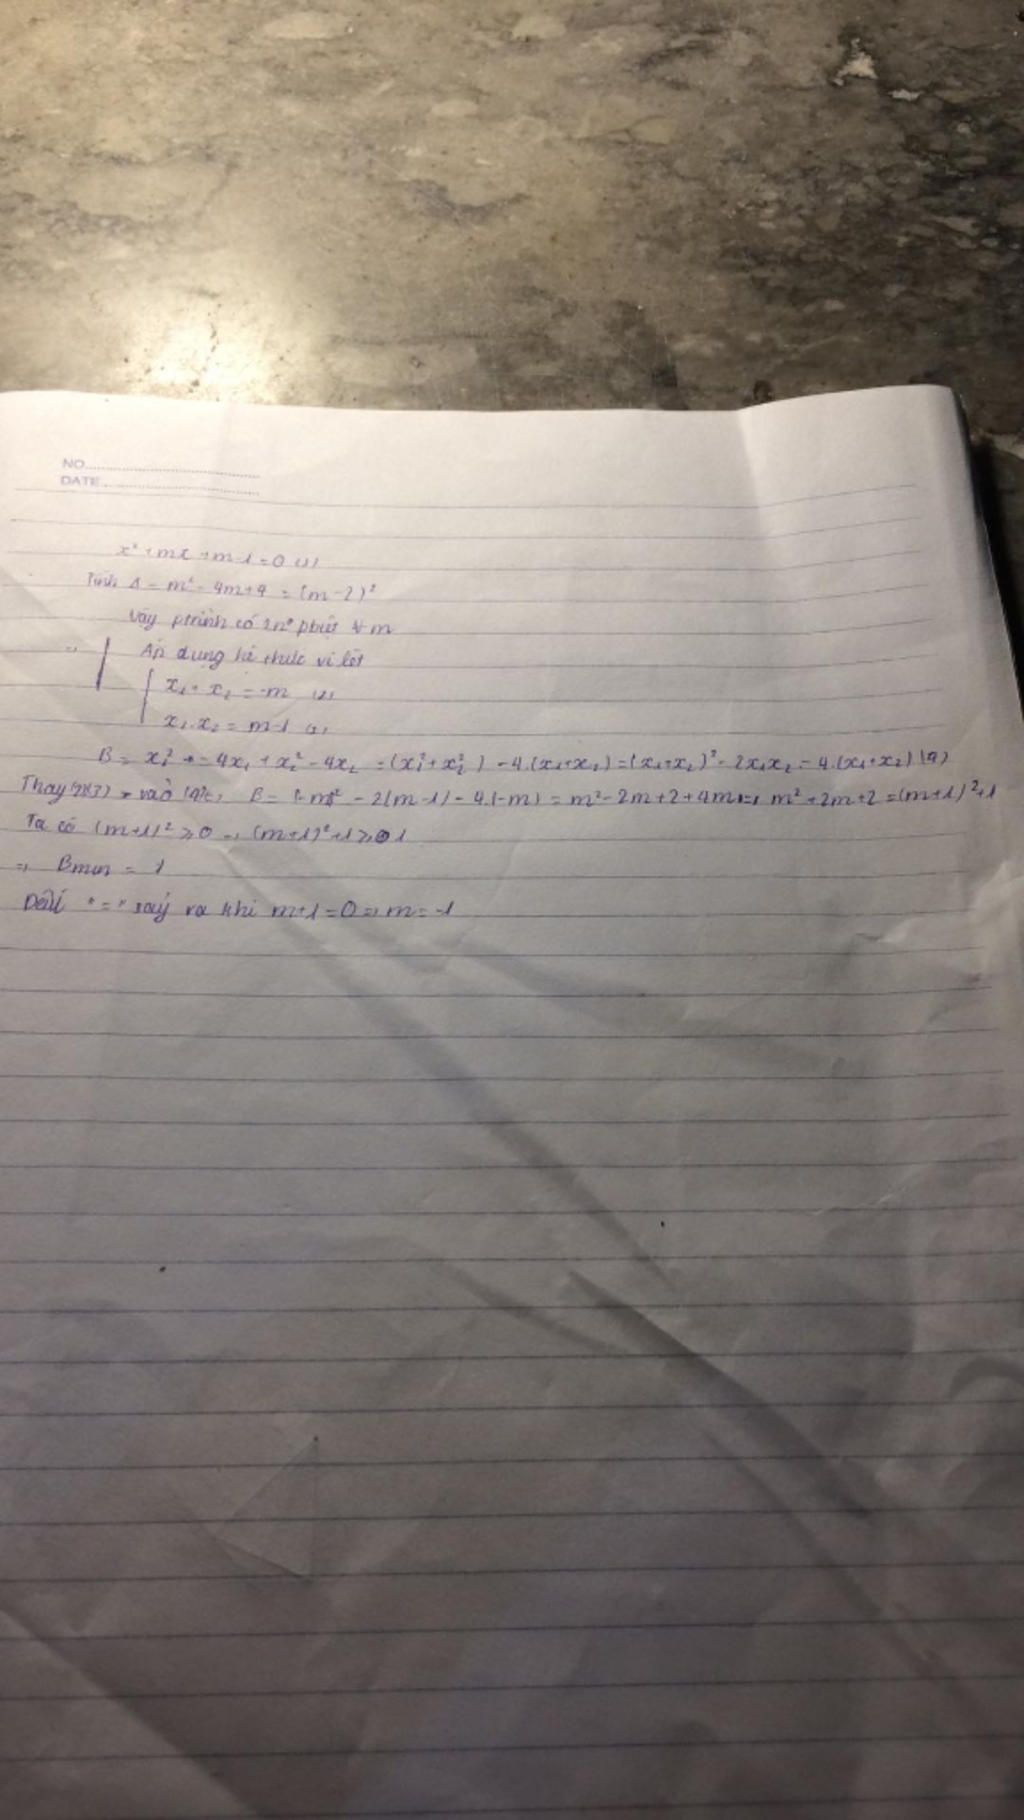 NO
DATE
x² + mx + m-1 = 0 (1)
Tính Δ = m² - 4m + 4 = (m-2)²
Vậy ptrình có 2n⁰ pbiệt ∀m
Áp dụng hệ thức vi ét
x₁ + x₂ = -m (2)
x₁.x₂ = m-1
B = x₁² - 4x₁ + x₂² - 4x₂ = (x₁² + x₂²) - 4.(x₁+x₂) = (x₁+x₂)² - 2x₁x₂ - 4.(x₁+x₂) (4)
Thay vào B = (-m)² - 2(m-1) - 4.(-m) = m² - 2m + 2 + 4m = m² + 2m + 2 = (m+1)² + 1
Ta có (m+1)² ≥ 0 => (m+1)² + 1 ≥ 1
=> Bmin = 1
Dấu "=" xảy ra khi m+1 = 0 => m = -1